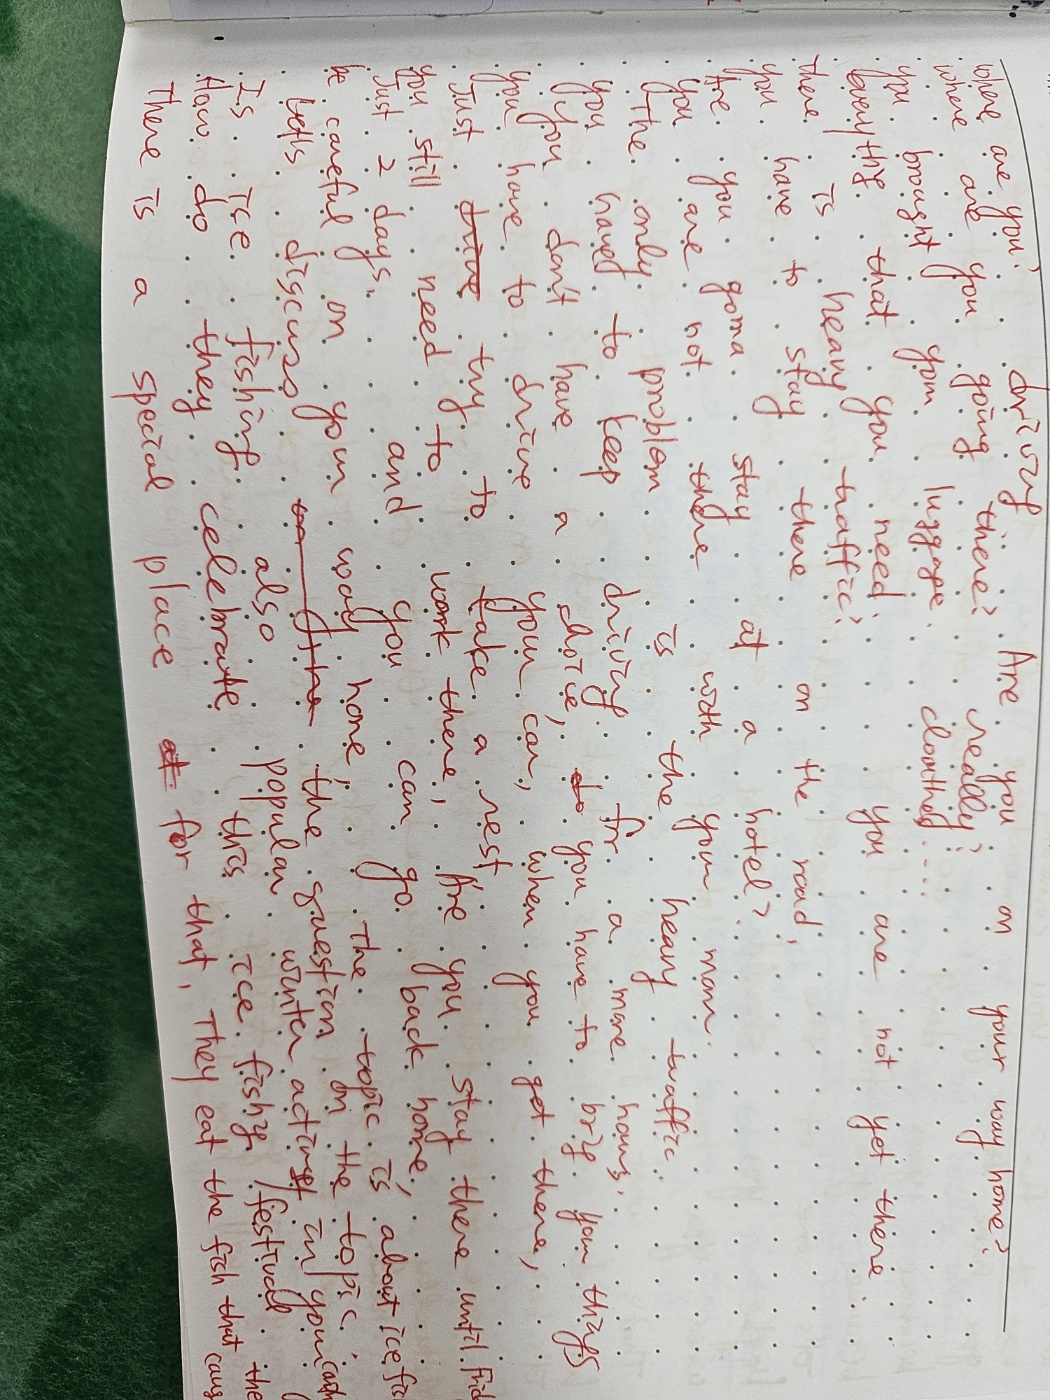 where are you? driving Are you on your way home?
where are you going there? really?
you brought your luggage. clothing....
Everything that you need. you are not yet there.
there is heavy traffic?
you have to stay there on the road,
Are you gonna stay at a hotel?
you are not there with your mom.
The only problem is the heavy traffic.
you have to keep driving. for a more hours.
you don't have a choice, to you have to bring your things
you have to drive your car, when you get there,
Just drive try to take a rest,
you still need to work there, Are you stay there until Frid
Just 2 days. and you can go back home,
be careful on your way home, The topic is about ice fis
Let's discuss the question on the topic.
Is ice fishing also popular winter activity in your
How do they celebrate this ice fishing/festival the
There is a special place at for that, They eat the fish that caug